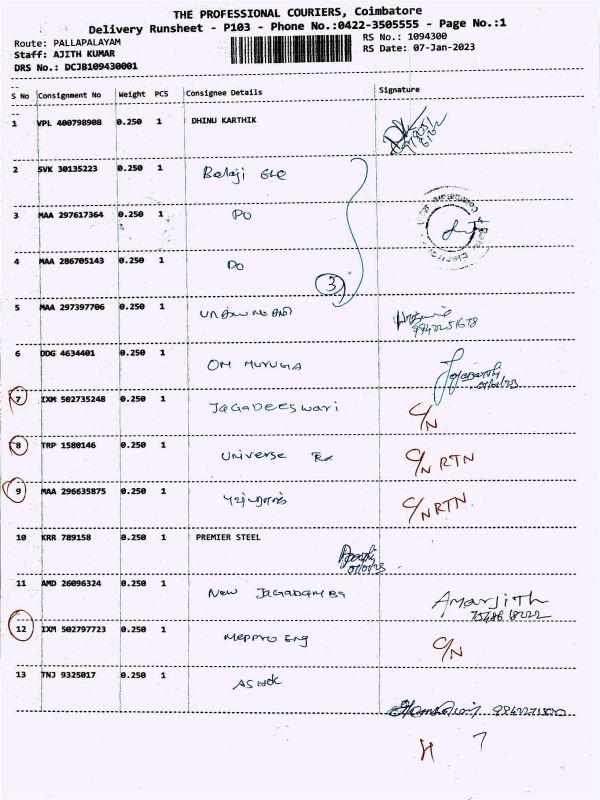 THE PROFESSIONAL COURIERS, Coimbatore
Delivery Runsheet - P103 - Phone No.:0422-3505555 - Page No.:1
Route: PALLAPALAYAM
RS No.: 1094300
Staff: AJITH KUMAR
RS Date: 07-Jan-2023
DRS No.: DCJB109430001
S No Consignment No Weight PCS Consignee Details Signature
1 VPL 400798908 0.250 1 DHINU KARTHIK
2 SVK 30135223 0.250 1 Balaji Ele
3 MAA 297617364 0.250 1 Do
4 MAA 286705143 0.250 1 Do
3
5 MAA 297397706 0.250 1
6 DDG 4634401 0.250 1 OM MURUGA
07/01/23
7 IXM 502735248 0.250 1 JAGADEESwari C/N
8 TRP 1580146 0.250 1 Universe C/N RTN
9 MAA 296635875 0.250 1 C/N RTN
10 KRR 789158 0.250 1 PREMIER STEEL
07/01/23
11 AMD 26096324 0.250 1 New JAGADAMBA Amarjith
75486 18222
12 IXM 502797723 0.250 1 Meppro Eng C/N
13 TNJ 9325017 0.250 1 ASHOK
7